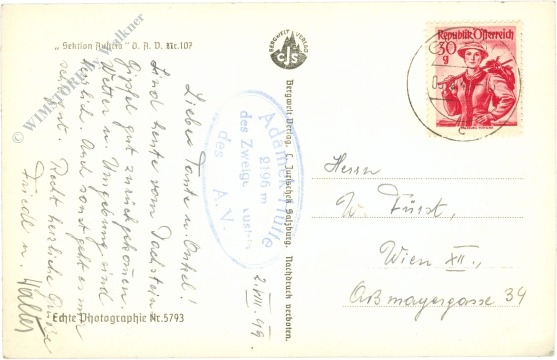 "Sektion Austria" D. A. V. Nr. 107
© WIMPÖRY Walkner
BERGWELT VERLAG
CJS
Bergwelt Verlag, C. Jurischek, Salzburg. Nachdruck verboten.
Echte Photographie Nr. 5793
Republik Österreich
30
g
Adamek Hütte
2196 m
des Zweiges Austria
des A. V.
2. VIII. 49.
Liebe Tante u. Onkel!
Sind heute vom Dachstein
Gipfel gut zurückgekommen.
Wetter u. Umgebung sind
herrlich. Und sonst geht es uns
sehr gut. Recht herzliche Grüsse
Friedl u. Walter
Herrn
W. Fürst,
Wien XII.,
Aßmayergasse 34